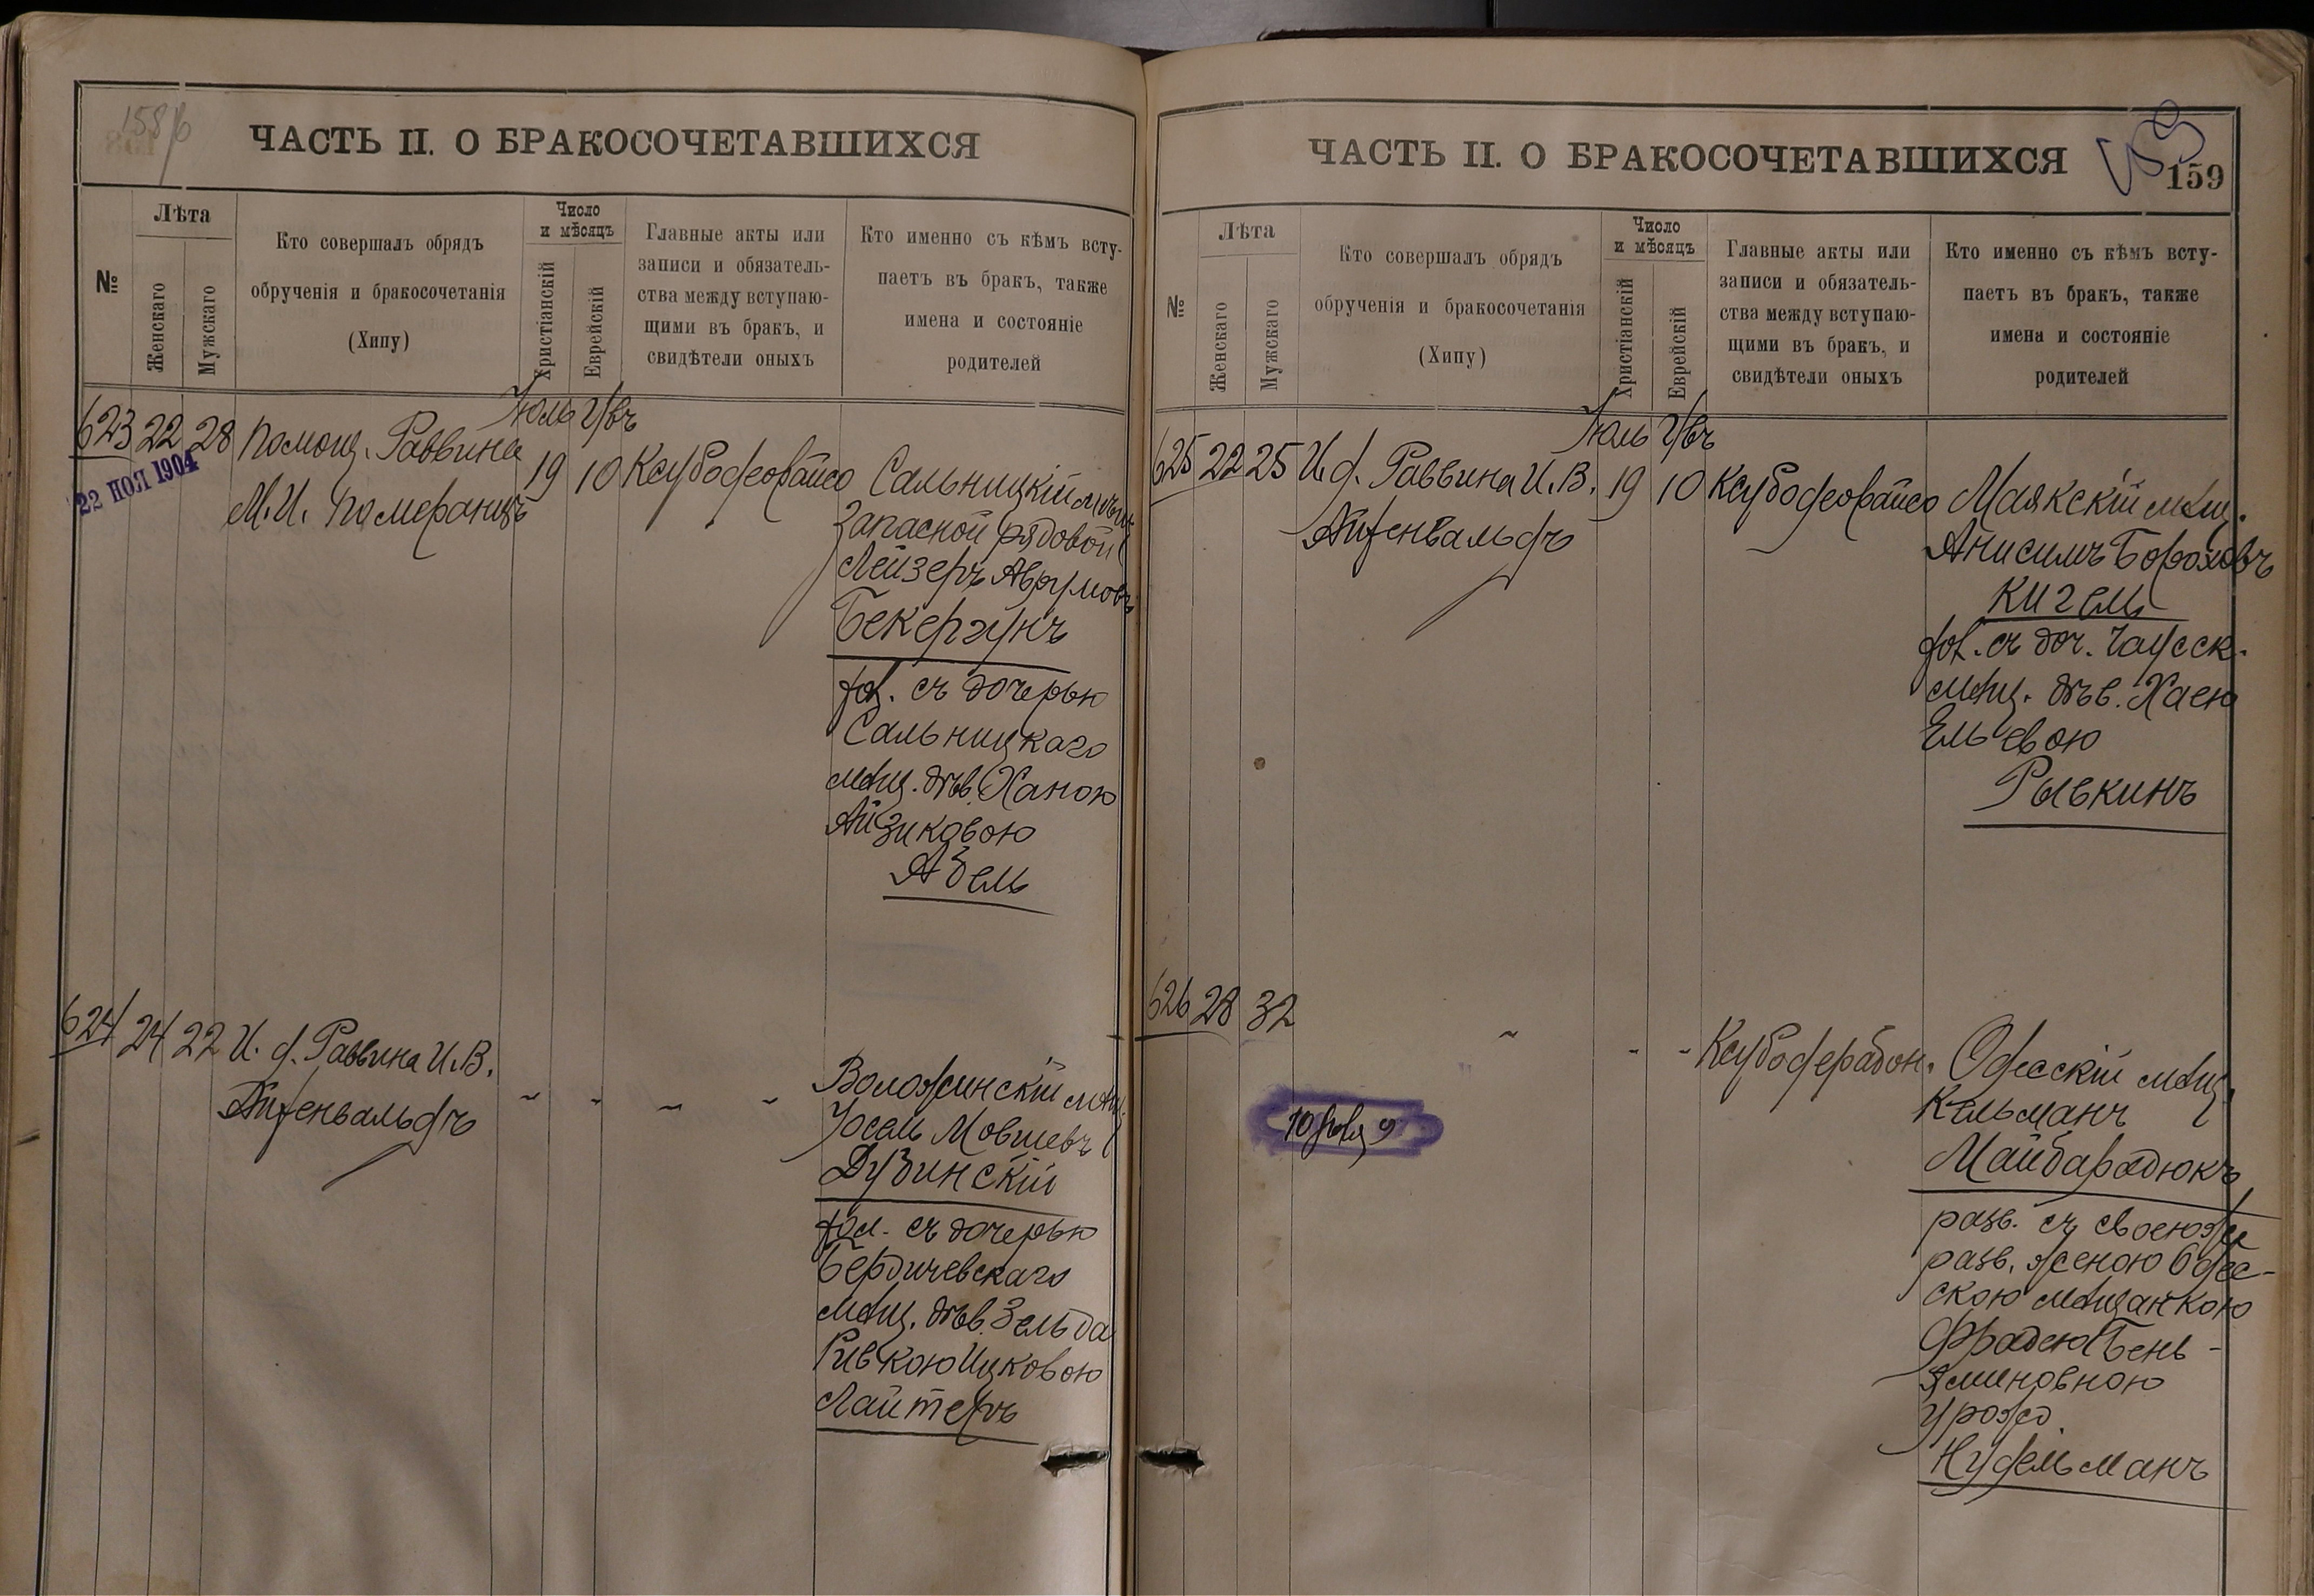 158
ЧАСТЬ II. О БРАКОСОЧЕТАВШИХСЯ
№
Лѣта
Женскаго
Мужскаго
Кто совершалъ обрядъ
обрученія и бракосочетанія
(Хипу)
Число
и мѣсяцъ
Христіанскій
Еврейскій
Главные акты или
записи и обязатель-
ства между вступаю-
щими въ бракъ, и
свидѣтели оныхъ
Кто именно съ кѣмъ всту-
паетъ въ бракъ, также
имена и состояніе
родителей
Іюль
623 22 28 Помощ. Раввина
22 1904
М. И. Померанцъ
19 10
Сальницкій
запасной рядовой
Лейзеръ Аврумовъ
Бекергунъ
съ дочерью
Сальницкаго
мѣщ. дѣв. Ханою
Айзиковою
Абель
624 24 22 И. д. Раввина И. В.
Айхенвальдъ
Воложинскій мѣщ.
Іосель Мовшевъ
Дубинскій
хол. съ дочерью
Бердичевскаго
мѣщ. дѣв. Зельда
Ривкою Ицковою
Лайтеръ
ЧАСТЬ II. О БРАКОСОЧЕТАВШИХСЯ
159
159
№
Лѣта
Женскаго
Мужскаго
Кто совершалъ обрядъ
обрученія и бракосочетанія
(Хипу)
Число
и мѣсяцъ
Христіанскій
Еврейскій
Главные акты или
записи и обязатель-
ства между вступаю-
щими въ бракъ, и
свидѣтели оныхъ
Кто именно съ кѣмъ всту-
паетъ въ бракъ, также
имена и состояніе
родителей
Іюль
625 22 25 И. д. Раввина И. В.
Айхенвальдъ
19 10
Маякскій мѣщ.
Анисимъ Бороховъ
Кигель
хол. съ доч. Чаусск.
мѣщ. дѣв. Хаею
Ельевою
Рывкинъ
626 28 32
Одесскій мѣщ.
Кельманъ
Майбарадюкъ
разв. съ своею же
разв. женою Одес-
скою мѣщанкою
Фрадею Бень-
яминовною
урожд.
Нудельманъ